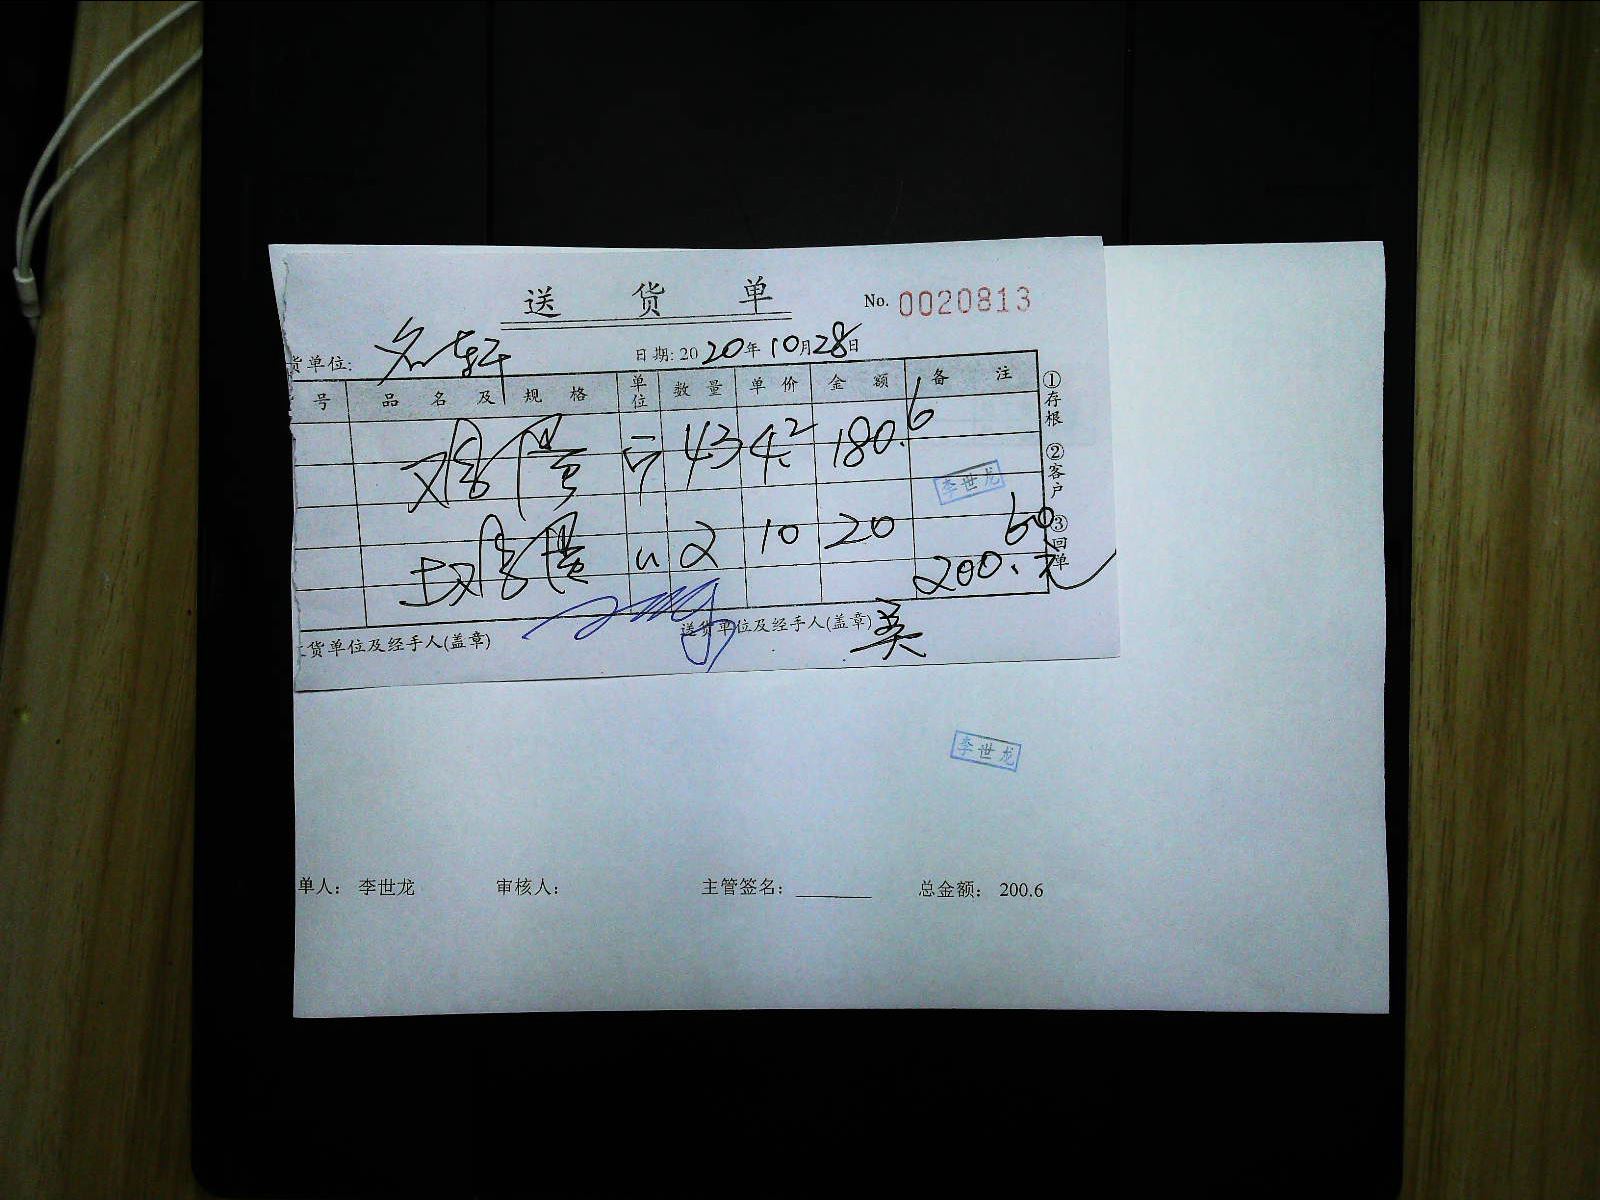 送 货 单 No. 0020813
货单位: 名轩 日期: 2020年10月28日
号 品名及规格 单位 数量 单价 金额 备注
鸡蛋 斤 43 4.2 180.6
李世龙
土鸡蛋 〃 2 10 20
200.60元
①存根 ②客户 ③回单
货单位及经手人(盖章) 送货单位及经手人(盖章) 吴
李世龙
单人: 李世龙 审核人: 主管签名: 总金额: 200.6